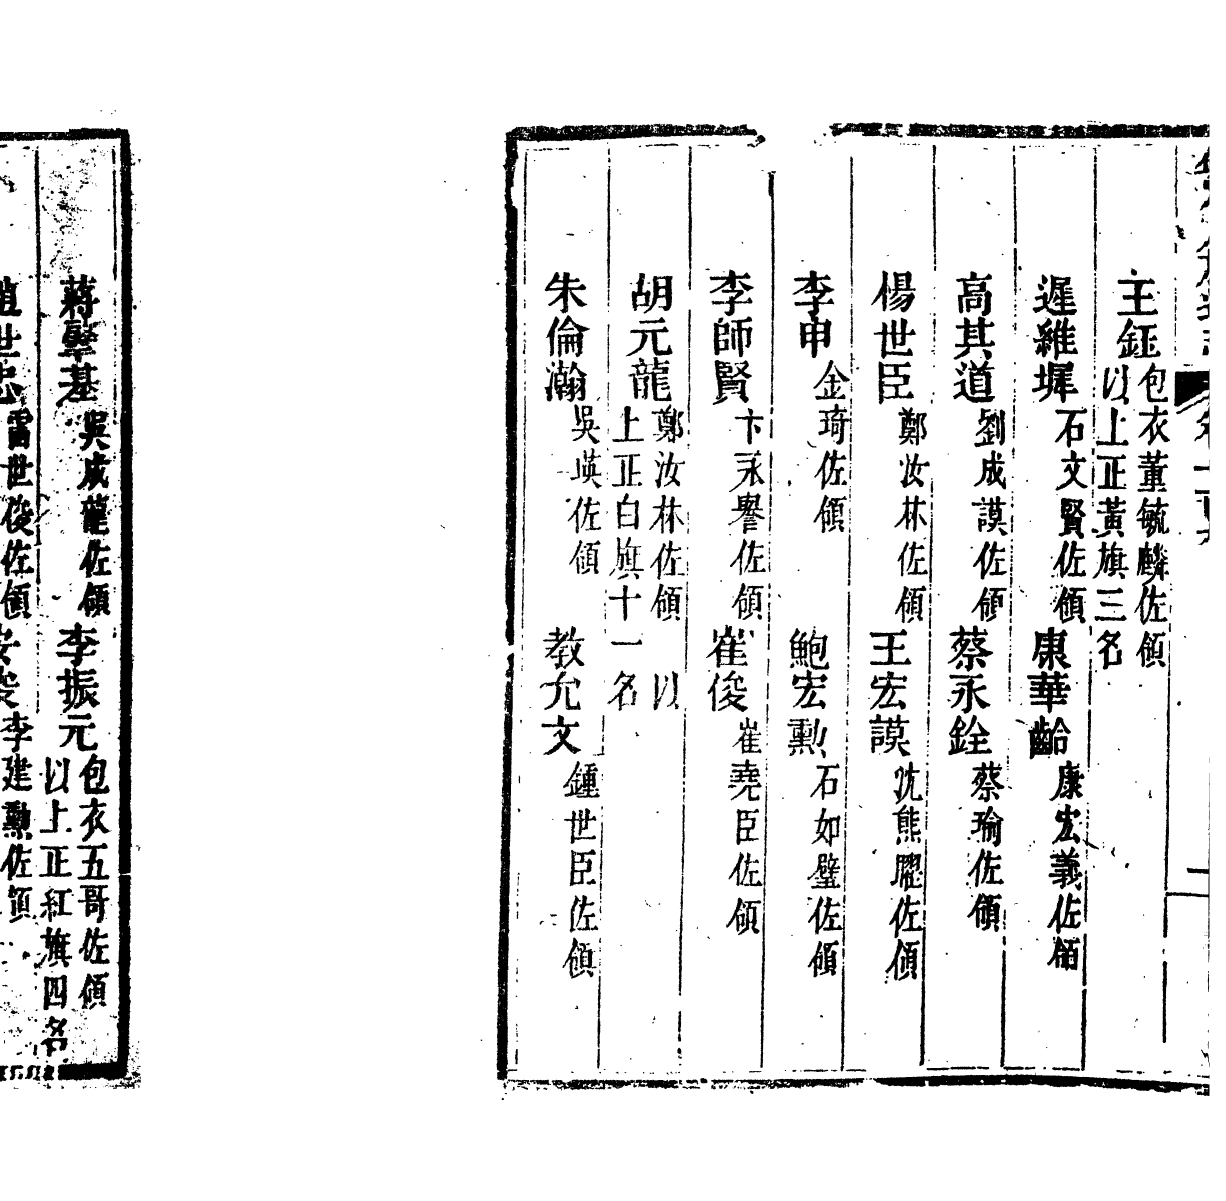 王鈺包衣董毓麟佐領以上正黃旗三名
遲維墀石文賢佐領康華齡康宏義佐領
高其道劉成謨佐領蔡永銓蔡瑜佐領
楊世臣鄭汝林佐領王宏謨沈熊躍佐領
李申金琦佐領鮑宏勳石如璧佐領
李師賢卞永譽佐領崔俊崔堯臣佐領
胡元龍鄭汝林佐領以上正白旗十一名
朱倫瀚吳瑛佐領教允文鍾世臣佐領
蔣肇基吳成龍佐領李振元包衣五哥佐領以上正紅旗四名
世忠雷世俊佐領李建勳佐領